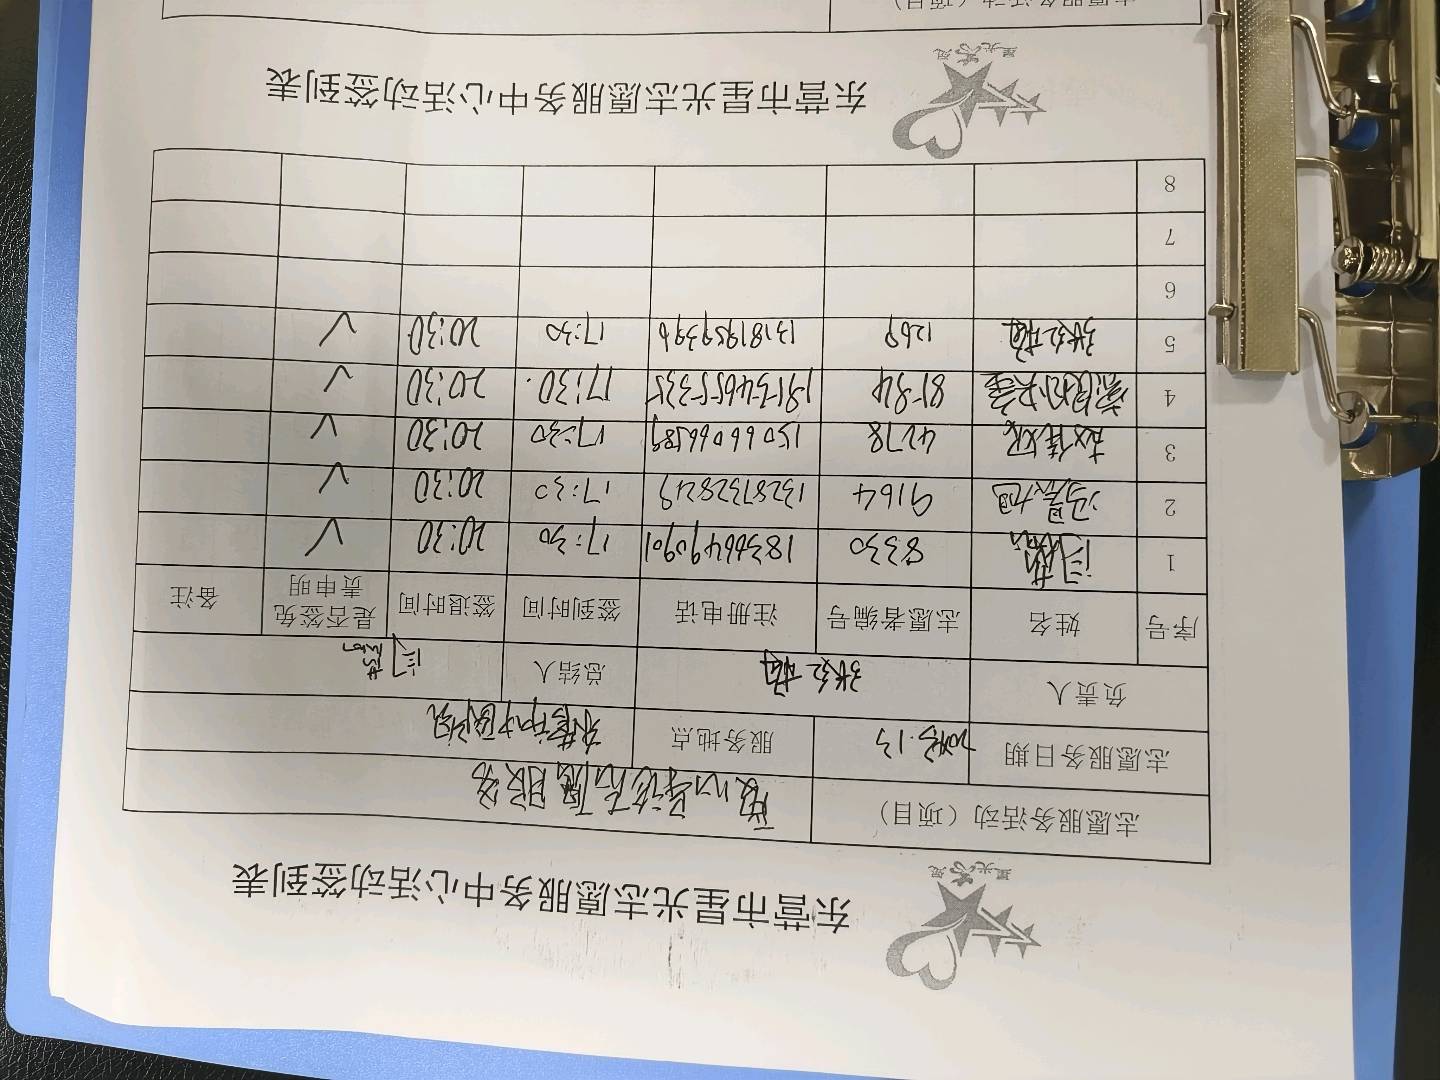 星光志愿
东营市星光志愿服务中心活动签到表
志愿服务活动（项目） 志愿服务
志愿服务日期 服务地点
负责人 张红梅 总结人
序号 姓名 志愿者编号 注册电话 签到时间 签退时间 是否签免责申明 备注
1 8330 18306490901 17:30 20:30 √
2 冯景旭 9164 13287328219 17:30 20:30 √
3 赵佳妮 4278 15066066589 17:30 20:30 √
4 8584 17:30 20:30 √
5 张红梅 1269 13181959396 17:30 20:30 √
6
7
8
星光志愿
东营市星光志愿服务中心活动签到表
志愿服务活动（项目）